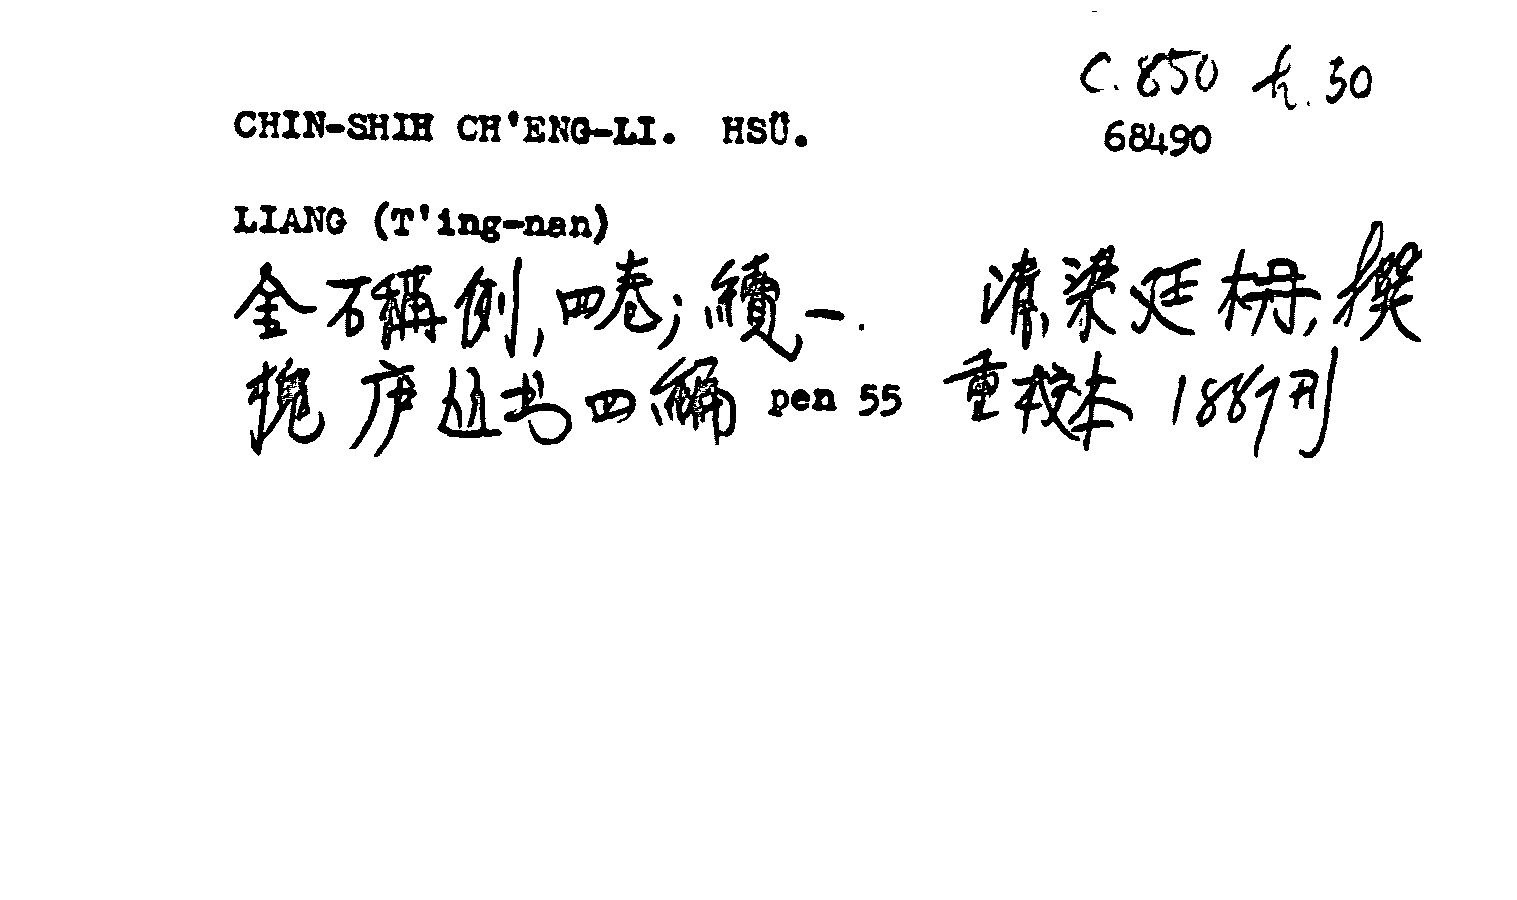 C. 850 h. 30
CHIN-SHIH CH'ENG-LI. HSÜ.
68490
LIANG (T'ing-nan)
金石稱例, 四卷; 續一. 清, 梁廷枏, 撰
槐庐丛书四編 pen 55 重校本 1887刊